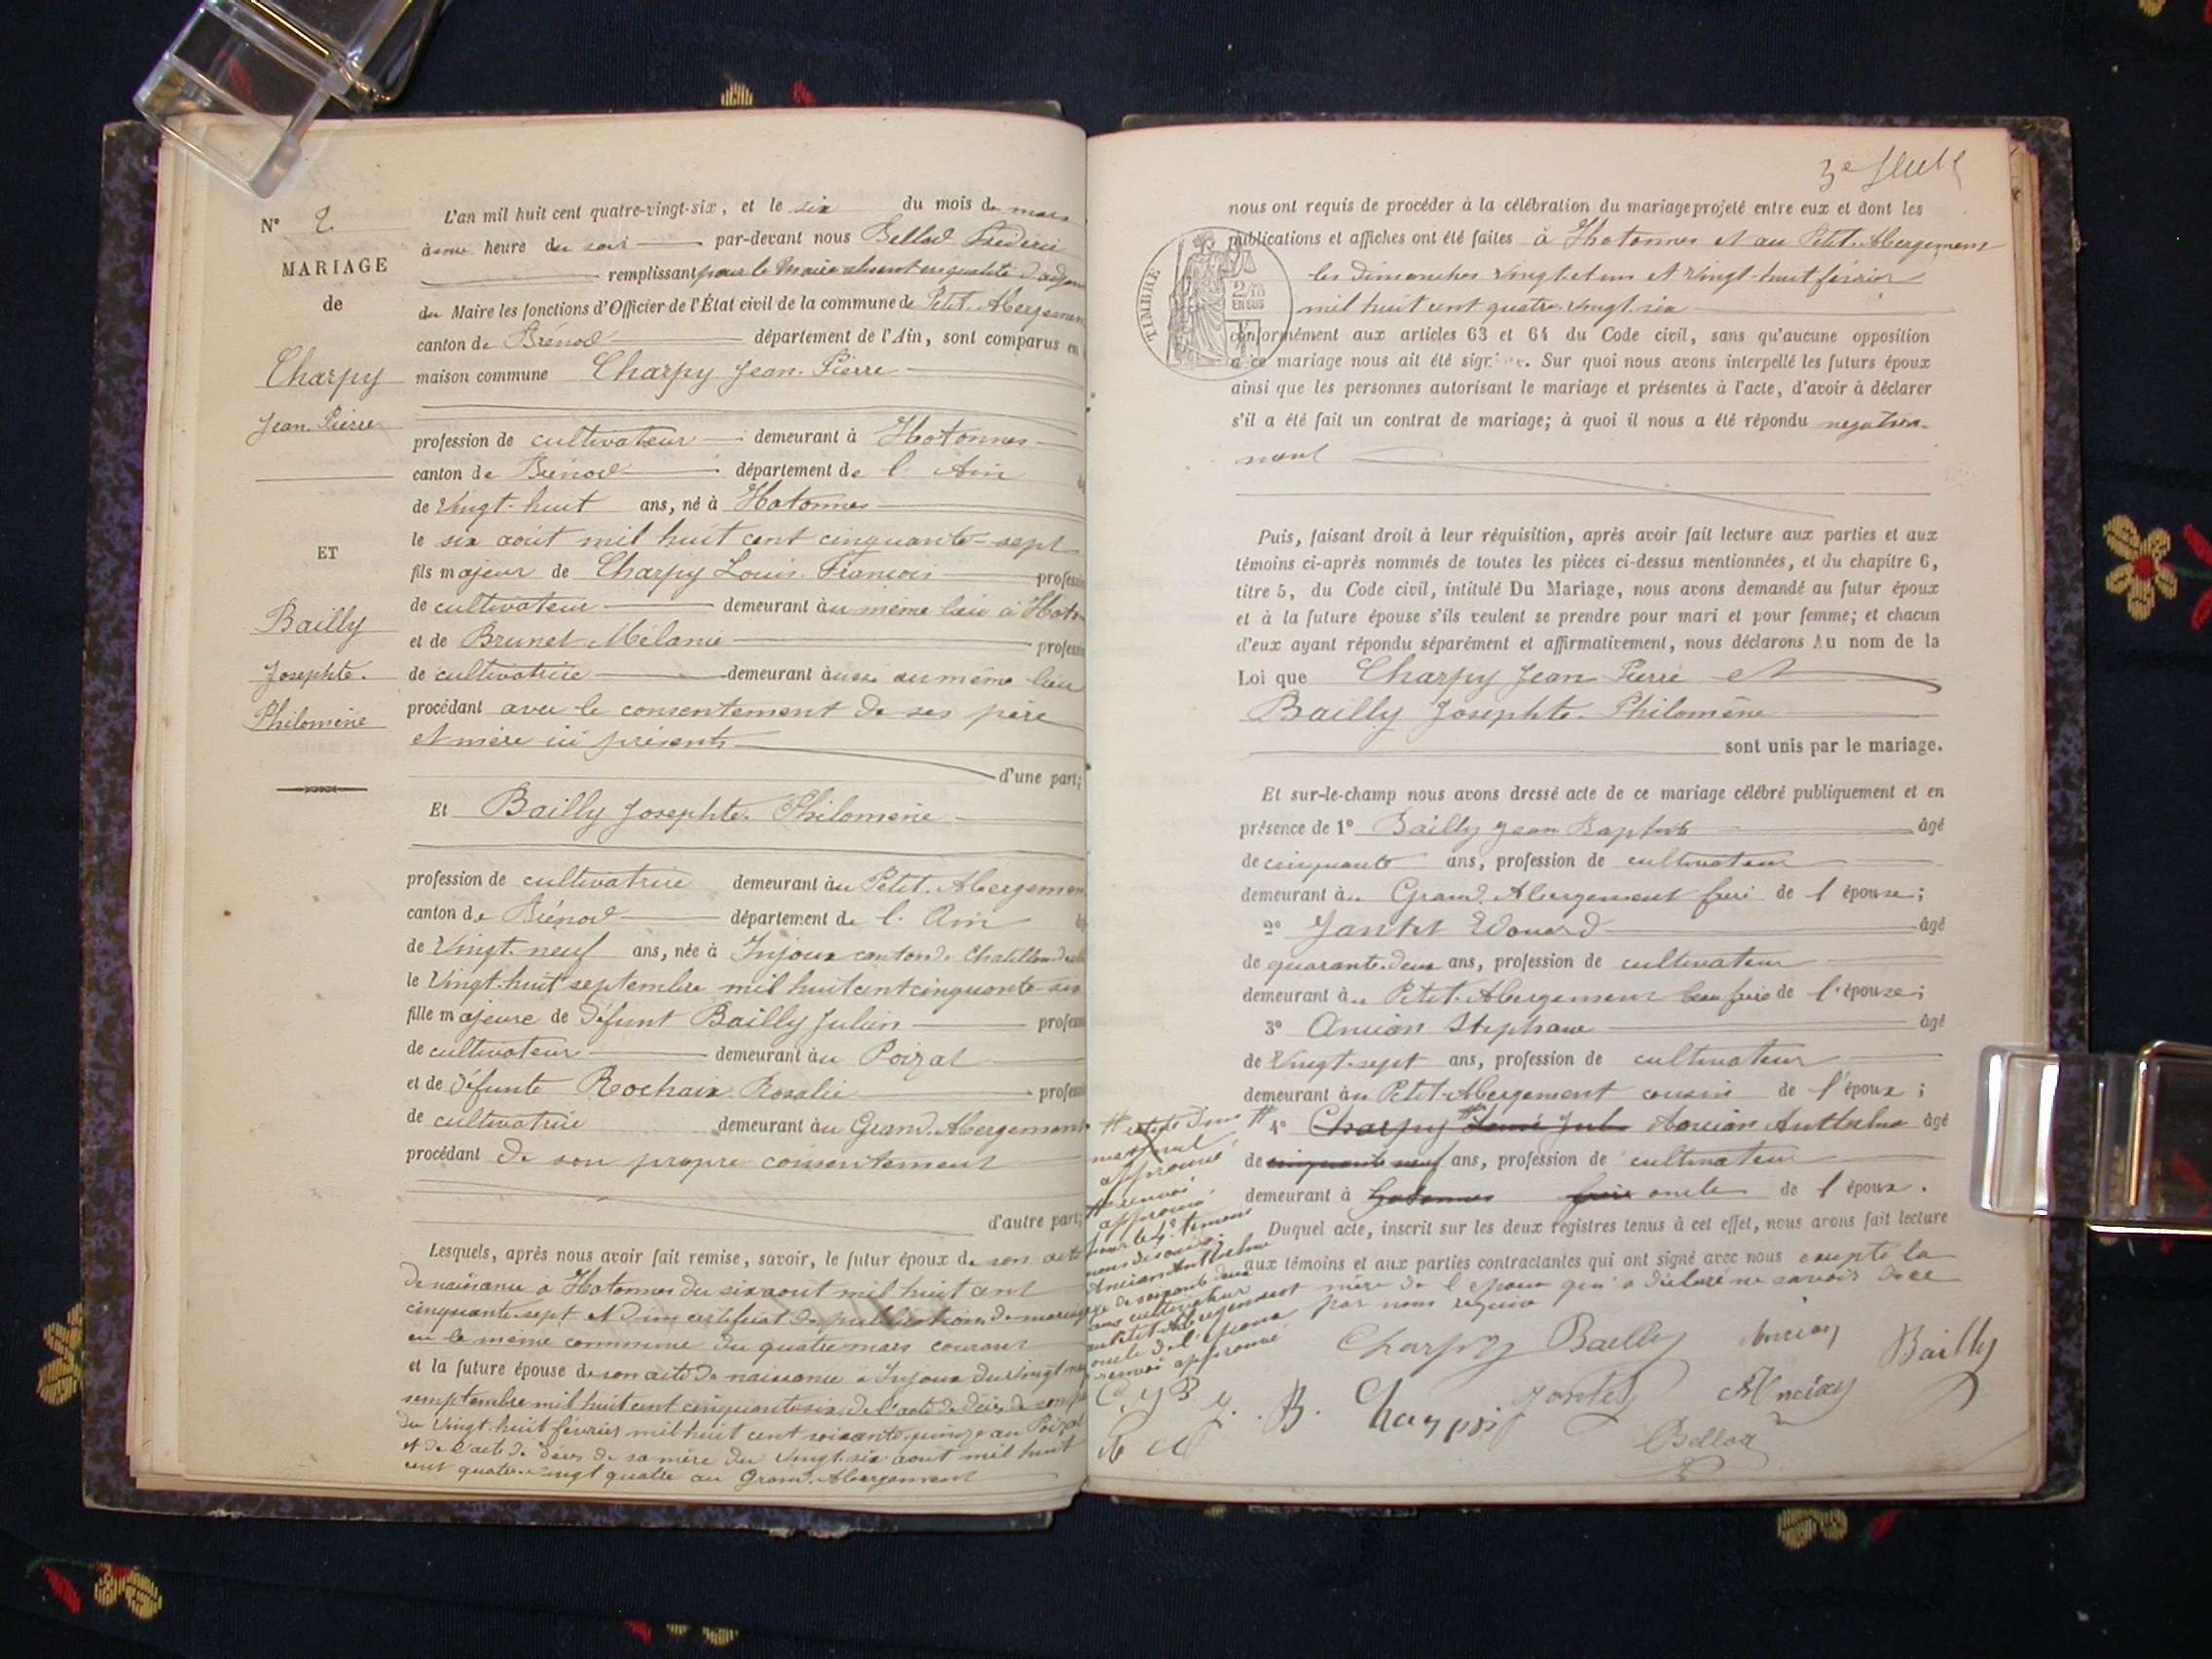 N° 2
MARIAGE
de
Charpy
Jean-Pierre
ET
Bailly
Josephte
Philomène
L'an mil huit cent quatre-vingt-six, et le six du mois de mars
à une heure du soir par-devant nous Bellod Frédéric
remplissant pour le Maire absent en qualité d'adjoint
du Maire les fonctions d'Officier de l'État civil de la commune de Petit-Abergement
canton de Brénod département de l'Ain, sont comparus en
maison commune Charpy Jean-Pierre
profession de cultivateur demeurant à Hotonnes
canton de Brénod département de l'Ain
de Vingt-huit ans, né à Hotonnes
le six août mil huit cent cinquante-sept
fils majeur de Charpy Louis François profession
de cultivateur demeurant au même lieu à Hoto-
et de Brunet Mélanie profession
de cultivatrice demeurant aussi au même lieu
procédant avec le consentement de ses père
et mère ici présents
d'une part;
Et Bailly Josephte Philomène
profession de cultivatrice demeurant au Petit-Abergement
canton de Brénod département de l'Ain
de Vingt-neuf ans, née à Injoux canton de Chatillon de
le Vingt-huit septembre mil huit cent cinquante-six
fille majeure de défunt Bailly Julien profession
de cultivateur demeurant au Poizat
et de défunte Rochaix Rosalie profession
de cultivatrice demeurant au Grand-Abergement
procédant de son propre consentement
d'autre part;
Lesquels, après nous avoir fait remise, savoir, le futur époux de son acte
de naissance à Hotonnes du six aout mil huit cent
cinquante-sept et d'un certificat de publication de mariage
en la même commune du quatre mars courant
et la future épouse de son acte de naissance à Injoux du vingt neuf
semptembre mil huit cent cinquante six, de l'acte de décès de son père
du vingt-huit février mil huit cent soixante quinze au Poizat
et de l'acte de décès de sa mère du vingt-six aout mil huit
cent quatre-vingt quatre au Grand-Abergement
3e
nous ont requis de procéder à la célébration du mariage projeté entre eux et dont les
publications et affiches ont été faites à Hotonnes et au Petit-Abergement
les dimanches vingt et un et vingt-huit février
mil huit cent quatre-vingt-six
TIMBRE
2/10
EN SUS
conformément aux articles 63 et 64 du Code civil, sans qu'aucune opposition
à ce mariage nous ait été signifiée. Sur quoi nous avons interpellé les futurs époux
ainsi que les personnes autorisant le mariage et présentes à l'acte, d'avoir à déclarer
s'il a été fait un contrat de mariage; à quoi il nous a été répondu négative-
ment
Puis, faisant droit à leur réquisition, après avoir fait lecture aux parties et aux
témoins ci-après nommés de toutes les pièces ci-dessus mentionnées, et du chapitre 6,
titre 5, du Code civil, intitulé Du Mariage, nous avons demandé au futur époux
et à la future épouse s'ils veulent se prendre pour mari et pour femme; et chacun
d'eux ayant répondu séparément et affirmativement, nous déclarons Au nom de la
Loi que Charpy Jean Pierre et
Bailly Josephte Philomène
sont unis par le mariage.
Et sur-le-champ nous avons dressé acte de ce mariage célébré publiquement et en
présence de 1° Bailly Jean Baptiste âgé
de cinquante ans, profession de cultivateur
demeurant au Grand-Abergement frère de l'épouse;
2° Jantet Edouard âgé
de quarante-deux ans, profession de cultivateur
demeurant au Petit-Abergement beau frère de l'épouse;
3° Ancian Stephane âgé
de Vingt-sept ans, profession de cultivateur
demeurant au Petit-Abergement cousin de l'époux;
4° Charpy Louis Jul Ancian Anthelme âgé
de cinquante neuf ans, profession de cultivateur
demeurant à Hotonnes frère oncle de l'époux.
renvoi
approuvé
pour le 4e témoin
nous disons:
Ancian Anthelme
âgé de soixante deux
ans cultivateur
au Petit-Abergement
oncle de l'époux
renvoi approuvé
Duquel acte, inscrit sur les deux registres tenus à cet effet, nous avons fait lecture
aux témoins et aux parties contractantes qui ont signé avec nous excepté la
mère de l'époux qui a déclaré ne savoir de ce
par nous requise
Charpy Bailly Ancian Bailly
Charpy Jantet Ancian
Bellod